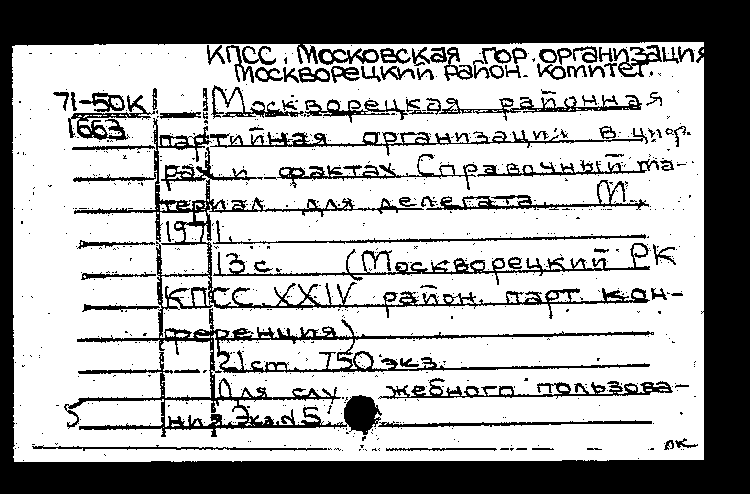 КПСС. Московская гор. организация
Москворецкий район. комитет.
71-50К Москворецкая районная
1663 партийная организация в циф-
рах и фактах Справочный ма-
териал для делегата. М.,
1971.
13 с. (Москворецкий РК
КПСС. XXIV район. парт. кон-
ференция)
21 ст. 750 экз.
Для служебного пользова-
5 ния. Экз. №5.
ОК